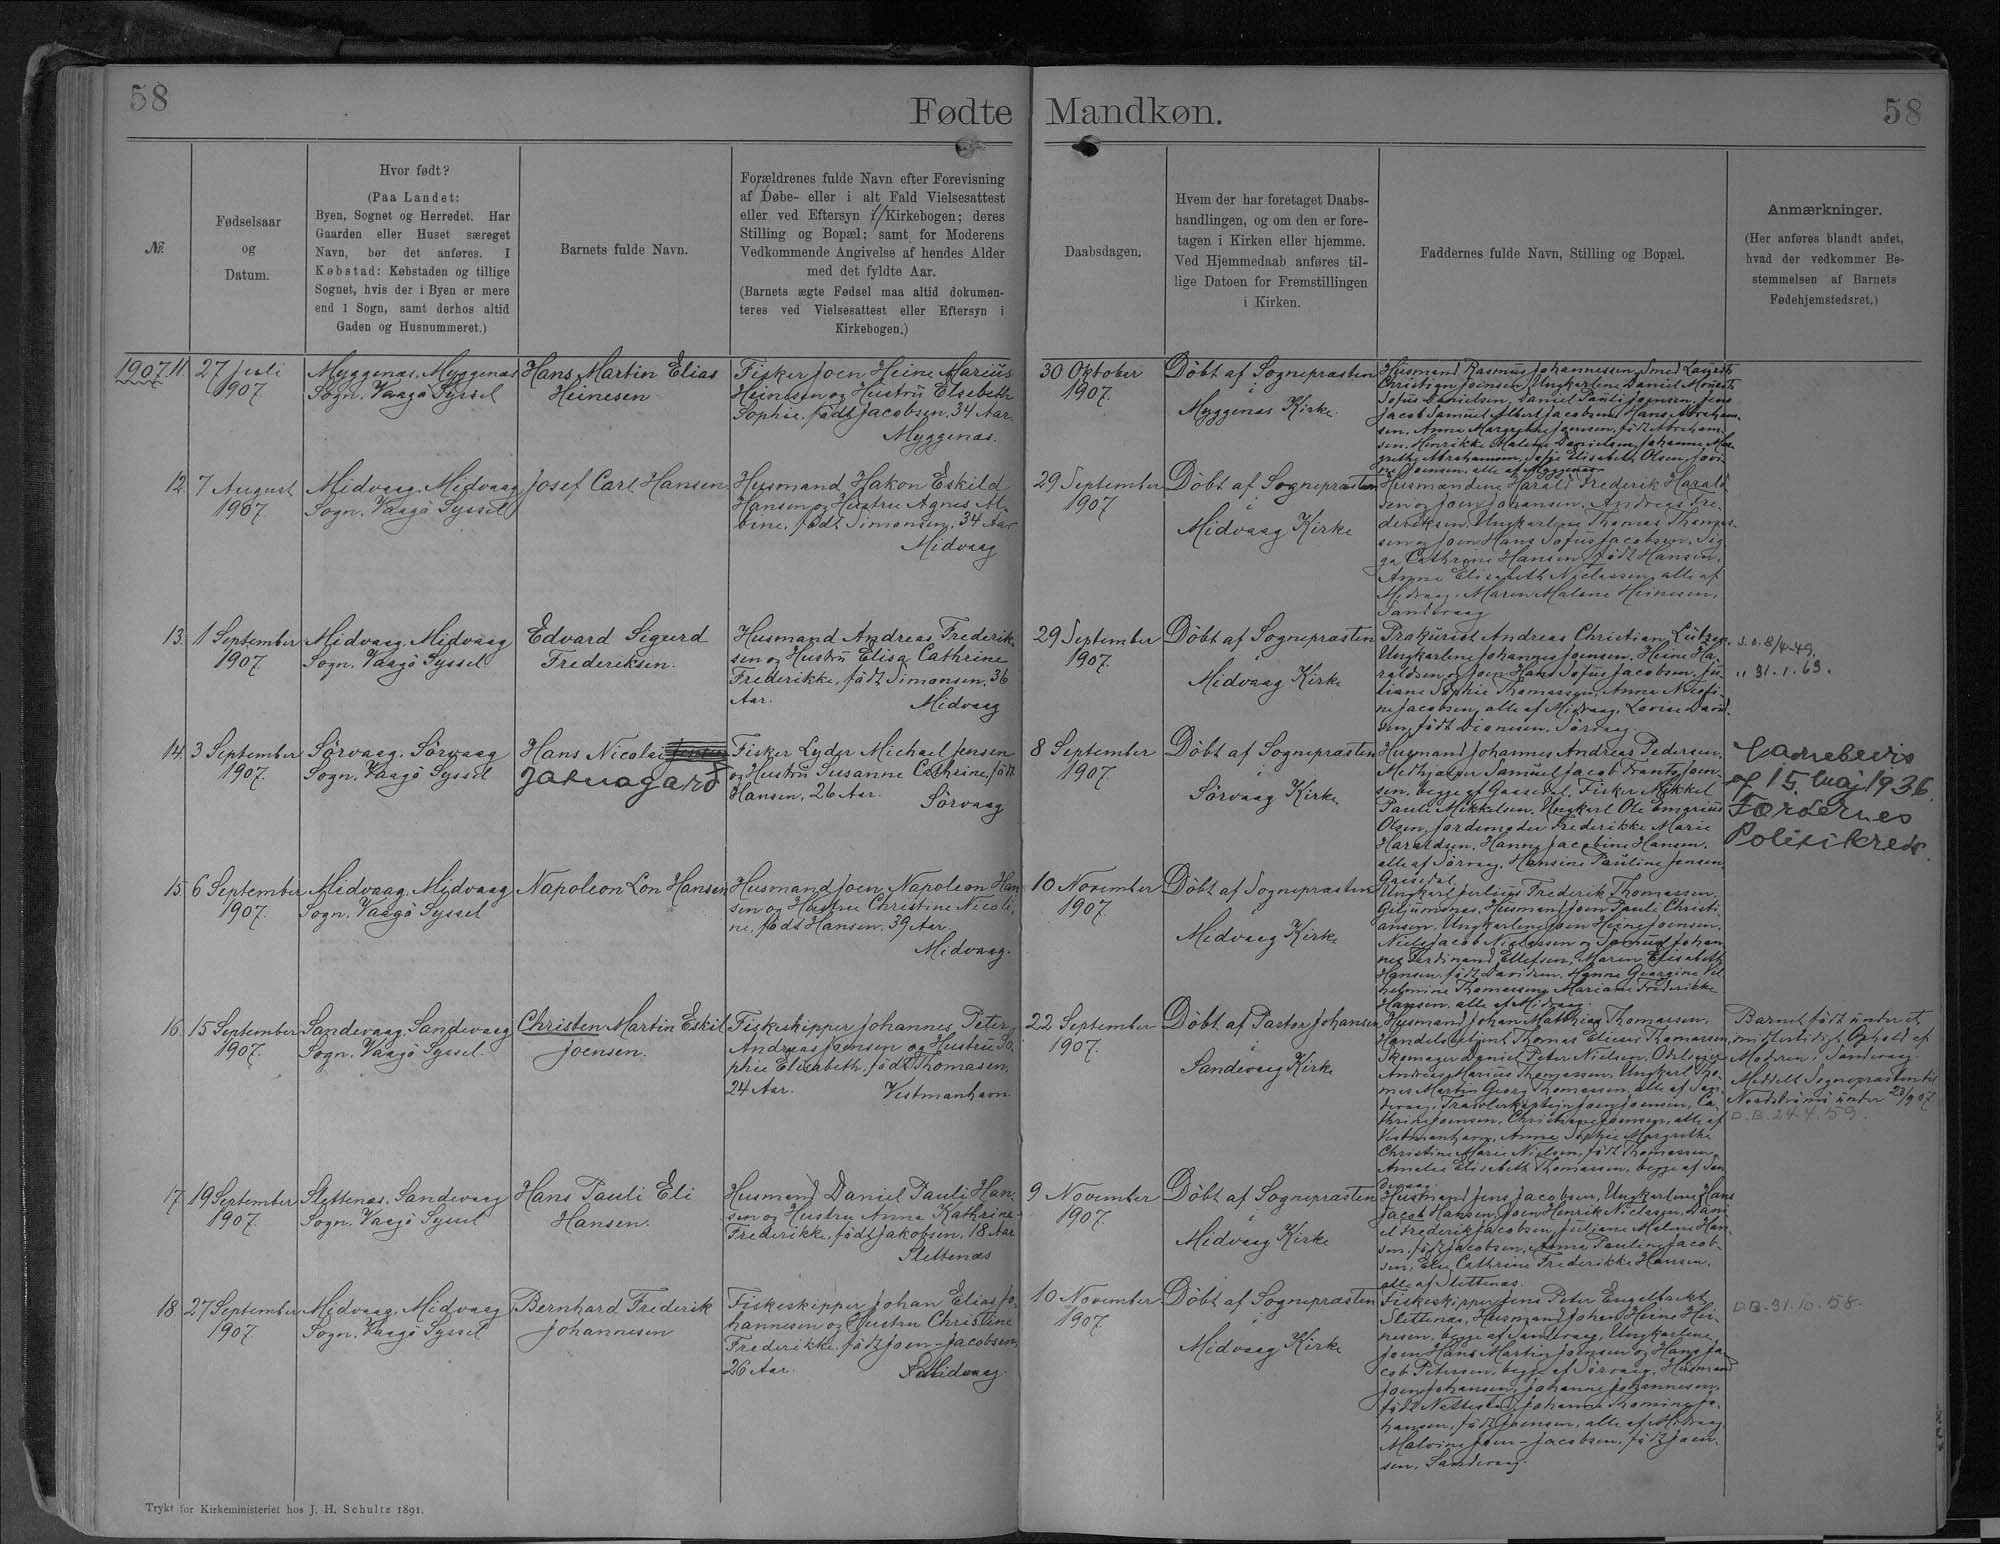 58
Fødte Mandkøn.
58
№.
Fødselsaar
og
Datum.
Hvor født?
(Paa Landet:
Byen, Sognet og Herredet. Har
Gaarden eller Huset særeget
Navn, bør det anføres. I
Købstad: Købstaden og tillige
Sognet, hvis der i Byen er mere
end 1 Sogn, samt derhos altid
Gaden og Husnummeret.)
Barnets fulde Navn.
Forældrenes fulde Navn efter Forevisning
af Døbe- eller i alt Fald Vielsesattest
eller ved Eftersyn i Kirkebogen; deres
Stilling og Bopæl; samt for Moderens
Vedkommende Angivelse af hendes Alder
med det fyldte Aar.
(Barnets ægte Fødsel maa altid dokumen-
teres ved Vielsesattest eller Eftersyn i
Kirkebogen.)
Daabsdagen.
Hvem der har foretaget Daabs-
handlingen, og om den er fore-
tagen i Kirken eller hjemme.
Ved Hjemmedaab anføres til-
lige Datoen for Fremstillingen
i Kirken.
Faddernes fulde Navn, Stilling og Bopæl.
Anmærkninger.
(Her anføres blandt andet,
hvad der vedkommer Be-
stemmelsen af Barnets
Fødehjemstedsret.)
1907. 11.
27 Juli
1907.
Myggenæs. Myggenæs
Sogn. Vaagø Syssel
Hans Martin Elias
Heinesen
Fisker Joen Heine Marius
Heinesen og Hustru Elsebeth
Sophie, født Jacobsen. 34 Aar.
Myggenæs.
30 Oktober
1907.
Døbt af Sognepræsten
i
Myggenæs Kirke.
Husmand Rasmus Johannessen, Smed Laurits
Christian Joensen, Ungkarlene Daniel Mourits
Sofus Danielsen, Daniel Pauli Joensen, Jens
Jacob Samuel Albert Jacobsen, Hans Abraham-
sen, Anna Margrethe Joensen, født Abraham-
sen, Henrikke Malene Danielsen, Johanne Mar-
grethe Abrahamsen, Elisabeth Olsen,
Joensen, alle af Myggenæs.
12.
7 August
1907
Midvaag. Midvaag
Sogn. Vaagø Syssel
Josef Carl Hansen
Husmand Hakon Eskild
Hansen og Hustru Agnes Al-
bine, født Simonsen, 34 Aar
Midvaag
29 September
1907
Døbt af Sognepræsten
i
Midvaag Kirke
Husmændene Harald Frederik Harald-
sen og Joen Johansen, Andreas Fre-
deriksen, Ungkarlene Thomas Thomas-
sen og Joen Hans Sofus Jacobsen, Sig-
ga Cathrine Hansen, født Hansen,
Anna Elisabeth Niclassen, alle af
Midvaag. Maren Malene Heinesen,
Sandevaag
13.
1 September
1907.
Midvaag. Midvaag
Sogn. Vaagø Syssel.
Edvard Sigurd
Frederiksen.
Husmand Andreas Frederik-
sen og Hustru Elisa Cathrine
Frederikke, født Simonsen. 36
Aar.
Midvaag
29 September
1907.
Døbt af Sognepræsten
i
Midvaag Kirke
Prokurist Andreas Christian Lützen,
Ungkarlene Johannes Joensen, Heine Ha-
raldsen og Joen Hans Sofus Jacobsen, Ju-
liane Sophie Thomassen, Anna Nicoli-
ne Jacobsen, alle af Midvaag, Lovise David-
sen, født Dionesen, Sørvaag.
8/4-49.
" 31. 1. 63.
14.
3 September
1907.
Sørvaag. Sørvaag
Sogn. Vaagø Syssel
Hans Nicolai
Jákupsgarð
Fisker Lyder Michael Jensen
og Hustru Susanne Cathrine, født
Hansen, 26 Aar.
Sørvaag
8 September
1907.
Døbt af Sognepræsten
i
Sørvaag Kirke
Husmand Johannes Andreas Pedersen,
Medhjælper Samuel Jacob Frants Joen-
sen, begge af Gaasedal, Fisker Mikkel
Pauli Mikkelsen, Ungkarl Ole Emanius
Olsen, Jordemoder Frederikke Marie
Haraldsen, Hanne Jacobine Hansen,
alle af Sørvaag, Hansine Pauline Jensen
Gaasedal.
Navnebevis
af 15. Maj 1936.
Færøernes
Politikreds.
15.
6 September
1907.
Midvaag. Midvaag
Sogn. Vaagø Syssel
Napoleon Lon Hansen
Husmand Joen Napoleon Han-
sen og Hustru Christine Nicoli-
ne, født Hansen. 39 Aar.
Midvaag.
10 November
1907.
Døbt af Sognepræsten
i
Midvaag Kirke
Ungkarl Julius Frederik Thomassen,
Giljumsnæs, Husmand Joen Pauli Christi-
ansen, Ungkarlene Joen Heine Joensen,
Niels Jacob Niclassen og Samuel Johan-
nes Ferdinand Ellefsen, Maren Elisabeth
Hansen, født Davidsen, Hanne Georgine Vil-
helmine Thomassen, Mariane Frederikke
Hansen, alle af Midvaag.
16.
15 September
1907.
Sandevaag. Sandevaag
Sogn. Vaagø Syssel.
Christen Martin Eskil
Joensen.
Fiskeskipper Johannes Peter
Andreas Joensen og Hustru So-
phie Elisabeth, født Thomasen,
24 Aar.
Vestmanhavn
22 September
1907.
Døbt af Pastor Johansen
i
Sandevaag Kirke
Husmand Johan Matthias Thomassen,
Handelsbetjent Thomas Elieser Thomassen,
Skomager Daniel Peter Nielsen, Odelsger
Andreas Marius Thomassen, Ungkarl Tho-
mas Martin Georg Thomassen, alle af San-
devaag, Trawlerkaptejn Joen Joensen, Ca-
thrine Joensen, Christiane Joensen, alle af
Vestmanhavn, Anna Sophie Margrethe
Christine Marie Nielsen, født Thomassen,
Amalie Elisabeth Thomassen, begge af San-
devaag.
Barnet født under et
midlertidigt Ophold af
Moderen i Sandevaag.
Meddelt Sognepræsten til
Nordstrømø under 23/9 07.
D. B. 24.4.59.
17.
19 September
1907.
Slettenæs. Sandevaag
Sogn. Vaagø Syssel
Hans Pauli Eli
Hansen.
Husmand Daniel Pauli Han-
sen og Hustru Anna Kathrine
Frederikke, født Jakobsen, 18 Aar
Slettenæs
9 November
1907.
Døbt af Sognepræsten
i
Midvaag Kirke
Husmand Jens Jacobsen, Ungkarlene Hans
Jacob Hansen, Joen Henrik Niclasen, Dani-
el Frederik Jacobsen, Juliane Malene Han-
sen, født Jacobsen, Anna Pauline Jacob-
sen, Else Cathrine Frederikke Hansen,
alle af Slettenæs.
18.
27 September
1907.
Midvaag. Midvaag
Sogn. Vaagø Syssel
Bernhard Frederik
Johannesen
Fiskeskipper Johan Elias Jo-
hannesen og Hustru Christine
Frederikke, født Joen-Jacobsen,
26 Aar.
Midvaag.
10 November
1907.
Døbt af Sognepræsten
i
Midvaag Kirke
Fiskeskipper Jens Peter Engelbrekt
Slettenæs, Husmand Johan Heine Hei-
nesen, begge af Sandevaag, Ungkarlene
Joen Hans Martin Joensen og Hans Ja-
cob Petersen, begge af Sørvaag, Husmand
Joen Johansen, Johanne Johannesen,
født Nattestad, Johanne Thomine Jo-
hansen, født Joensen, alle af Midvaag,
Malvine Joen-Jacobsen, født Joen-
sen, Sandevaag.
D.B. 31.10.58.
Trykt for Kirkeministeriet hos J. H. Schultz 1891.